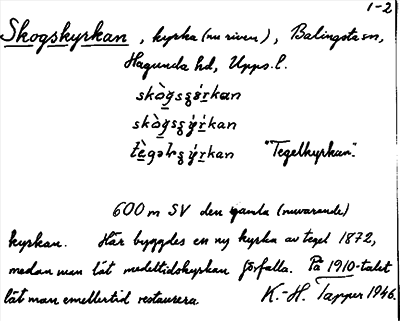 1-2
Skogskyrkan, kyrka (nu riven), Balingsta sn,
Hagunda hd, Upps. l.
"Tegelkyrkan".
600 m SV den gamla (nuvarande)
kyrkan. Här byggdes en ny kyrka av tegel 1872,
medan man lät medeltidskyrkan förfalla. På 1910-talet
lät man emellertid restaurera K.-H. Tapper 1946.